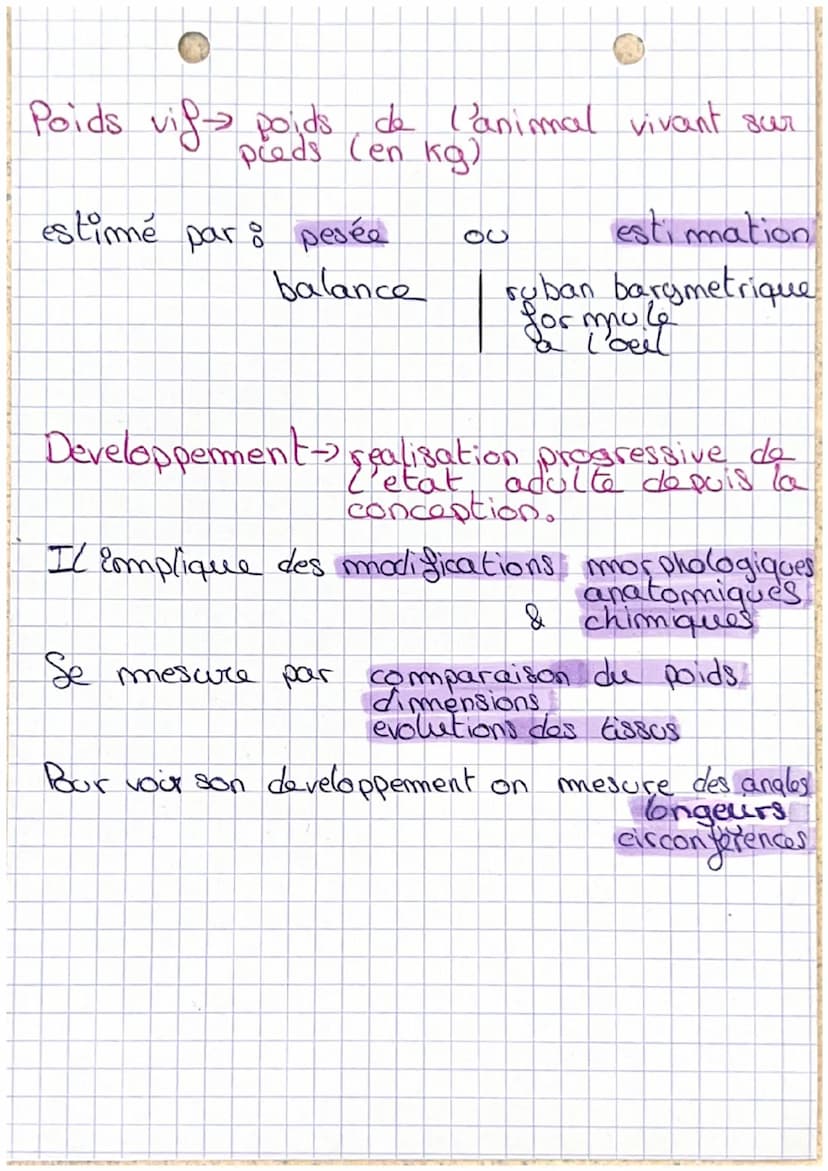 Poids vif → poids de l'animal vivant sur
pieds (en kg)
estimé par : pesée ou estimation
balance ruban barymetrique
formule
à l'oeil
Developpement → realisation progressive de
l'etat adulte depuis la
conception.
Il implique des modifications morphologiques
anatomiques
& chimiques
Se mesure par comparaison du poids
dimensions
evolutions des tissus
Pour voir son developpement on mesure des angles
longeurs
circonférences